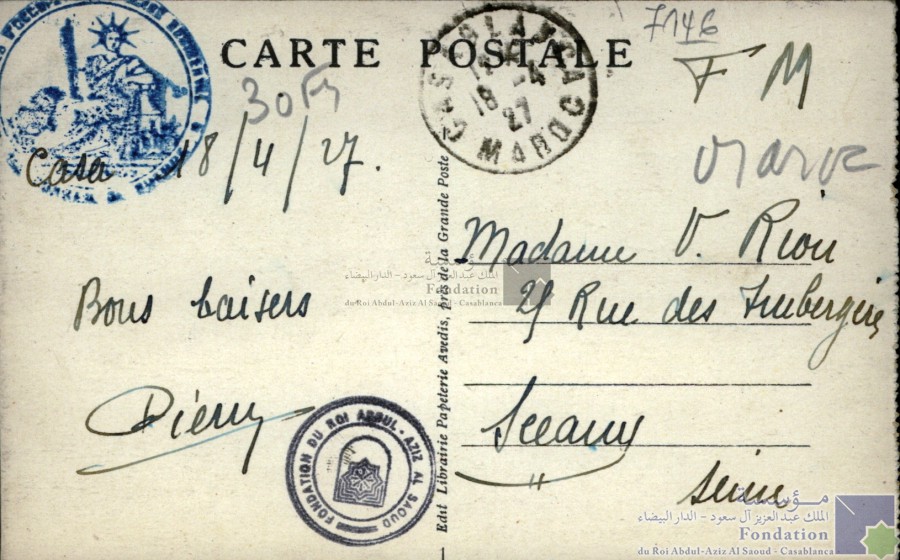 CARTE POSTALE
7146
F M
30F
CASABLANCA
18 -4
27
MAROC
Casa 18/4/27.
Maroc
Madame V. Riou
Rue des Imbergères
Sceaux
Seine
Bons baisers
Pierre
Edit Librairie Papeterie Avedis, près de la Grande Poste
1
FONDATION DU ROI ABDUL-AZIZ AL SAOUD
مؤسسة
الملك عبد العزيز آل سعود - الدار البيضاء
Fondation
du Roi Abdul-Aziz Al Saoud - Casablanca
مؤسسة
الملك عبد العزيز آل سعود - الدار البيضاء
Fondation
du Roi Abdul-Aziz Al Saoud - Casablanca